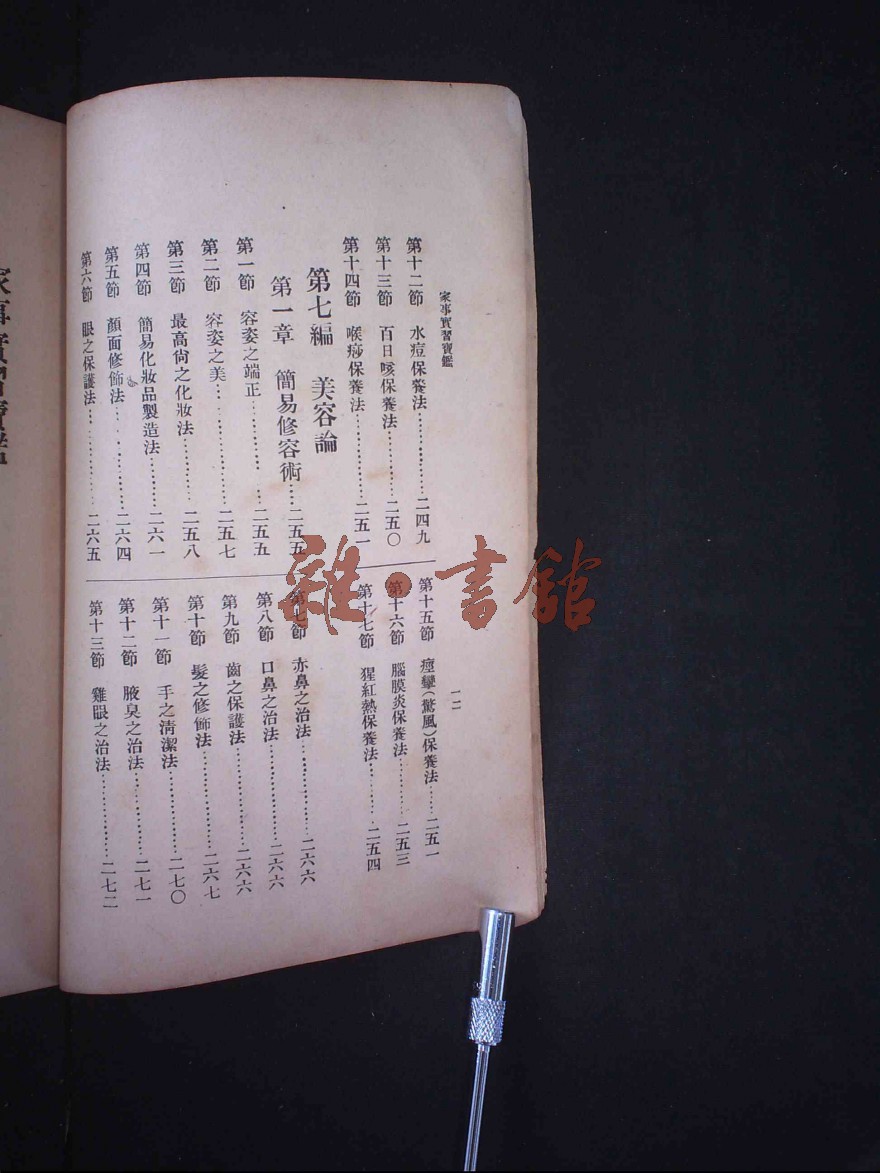 家事實習寶鑑
一二
第十二節 水痘保養法……………二四九
第十三節 百日咳保養法……………二五〇
第十四節 喉痧保養法……………二五一
第十五節 痙攣(驚風)保養法……二五一
第十六節 腦膜炎保養法……………二五三
第十七節 猩紅熱保養法……………二五四
第七編 美容論
第一章 簡易修容術……二五五
第一節 容姿之端正……………二五五
第二節 容姿之美……………二五七
第三節 最高尙之化妝法……………二五八
第四節 簡易化妝品製造法……………二六一
第五節 顏面修飾法……………二六四
第六節 眼之保護法……………二六五
第七節 赤鼻之治法……………二六六
第八節 口鼻之治法……………二六六
第九節 齒之保護法……………二六六
第十節 髮之修飾法……………二六七
第十一節 手之淸潔法……………二七〇
第十二節 腋臭之治法……………二七一
第十三節 雞眼之治法……………二七二
家事實習寶鑑
雜·書館